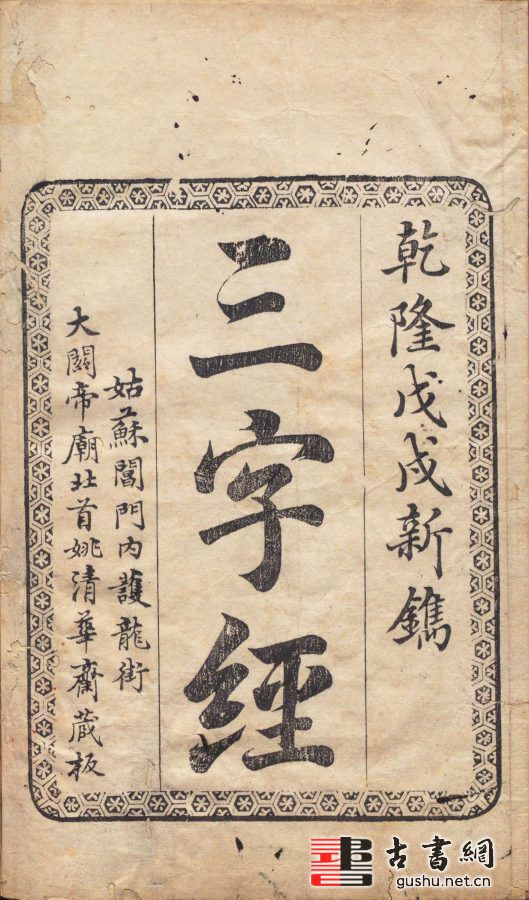 乾隆戊戌新鐫
三字經
姑蘇閶門內護龍街
大關帝廟北首姚清華齋蔵板
古書網
gushu.net.cn